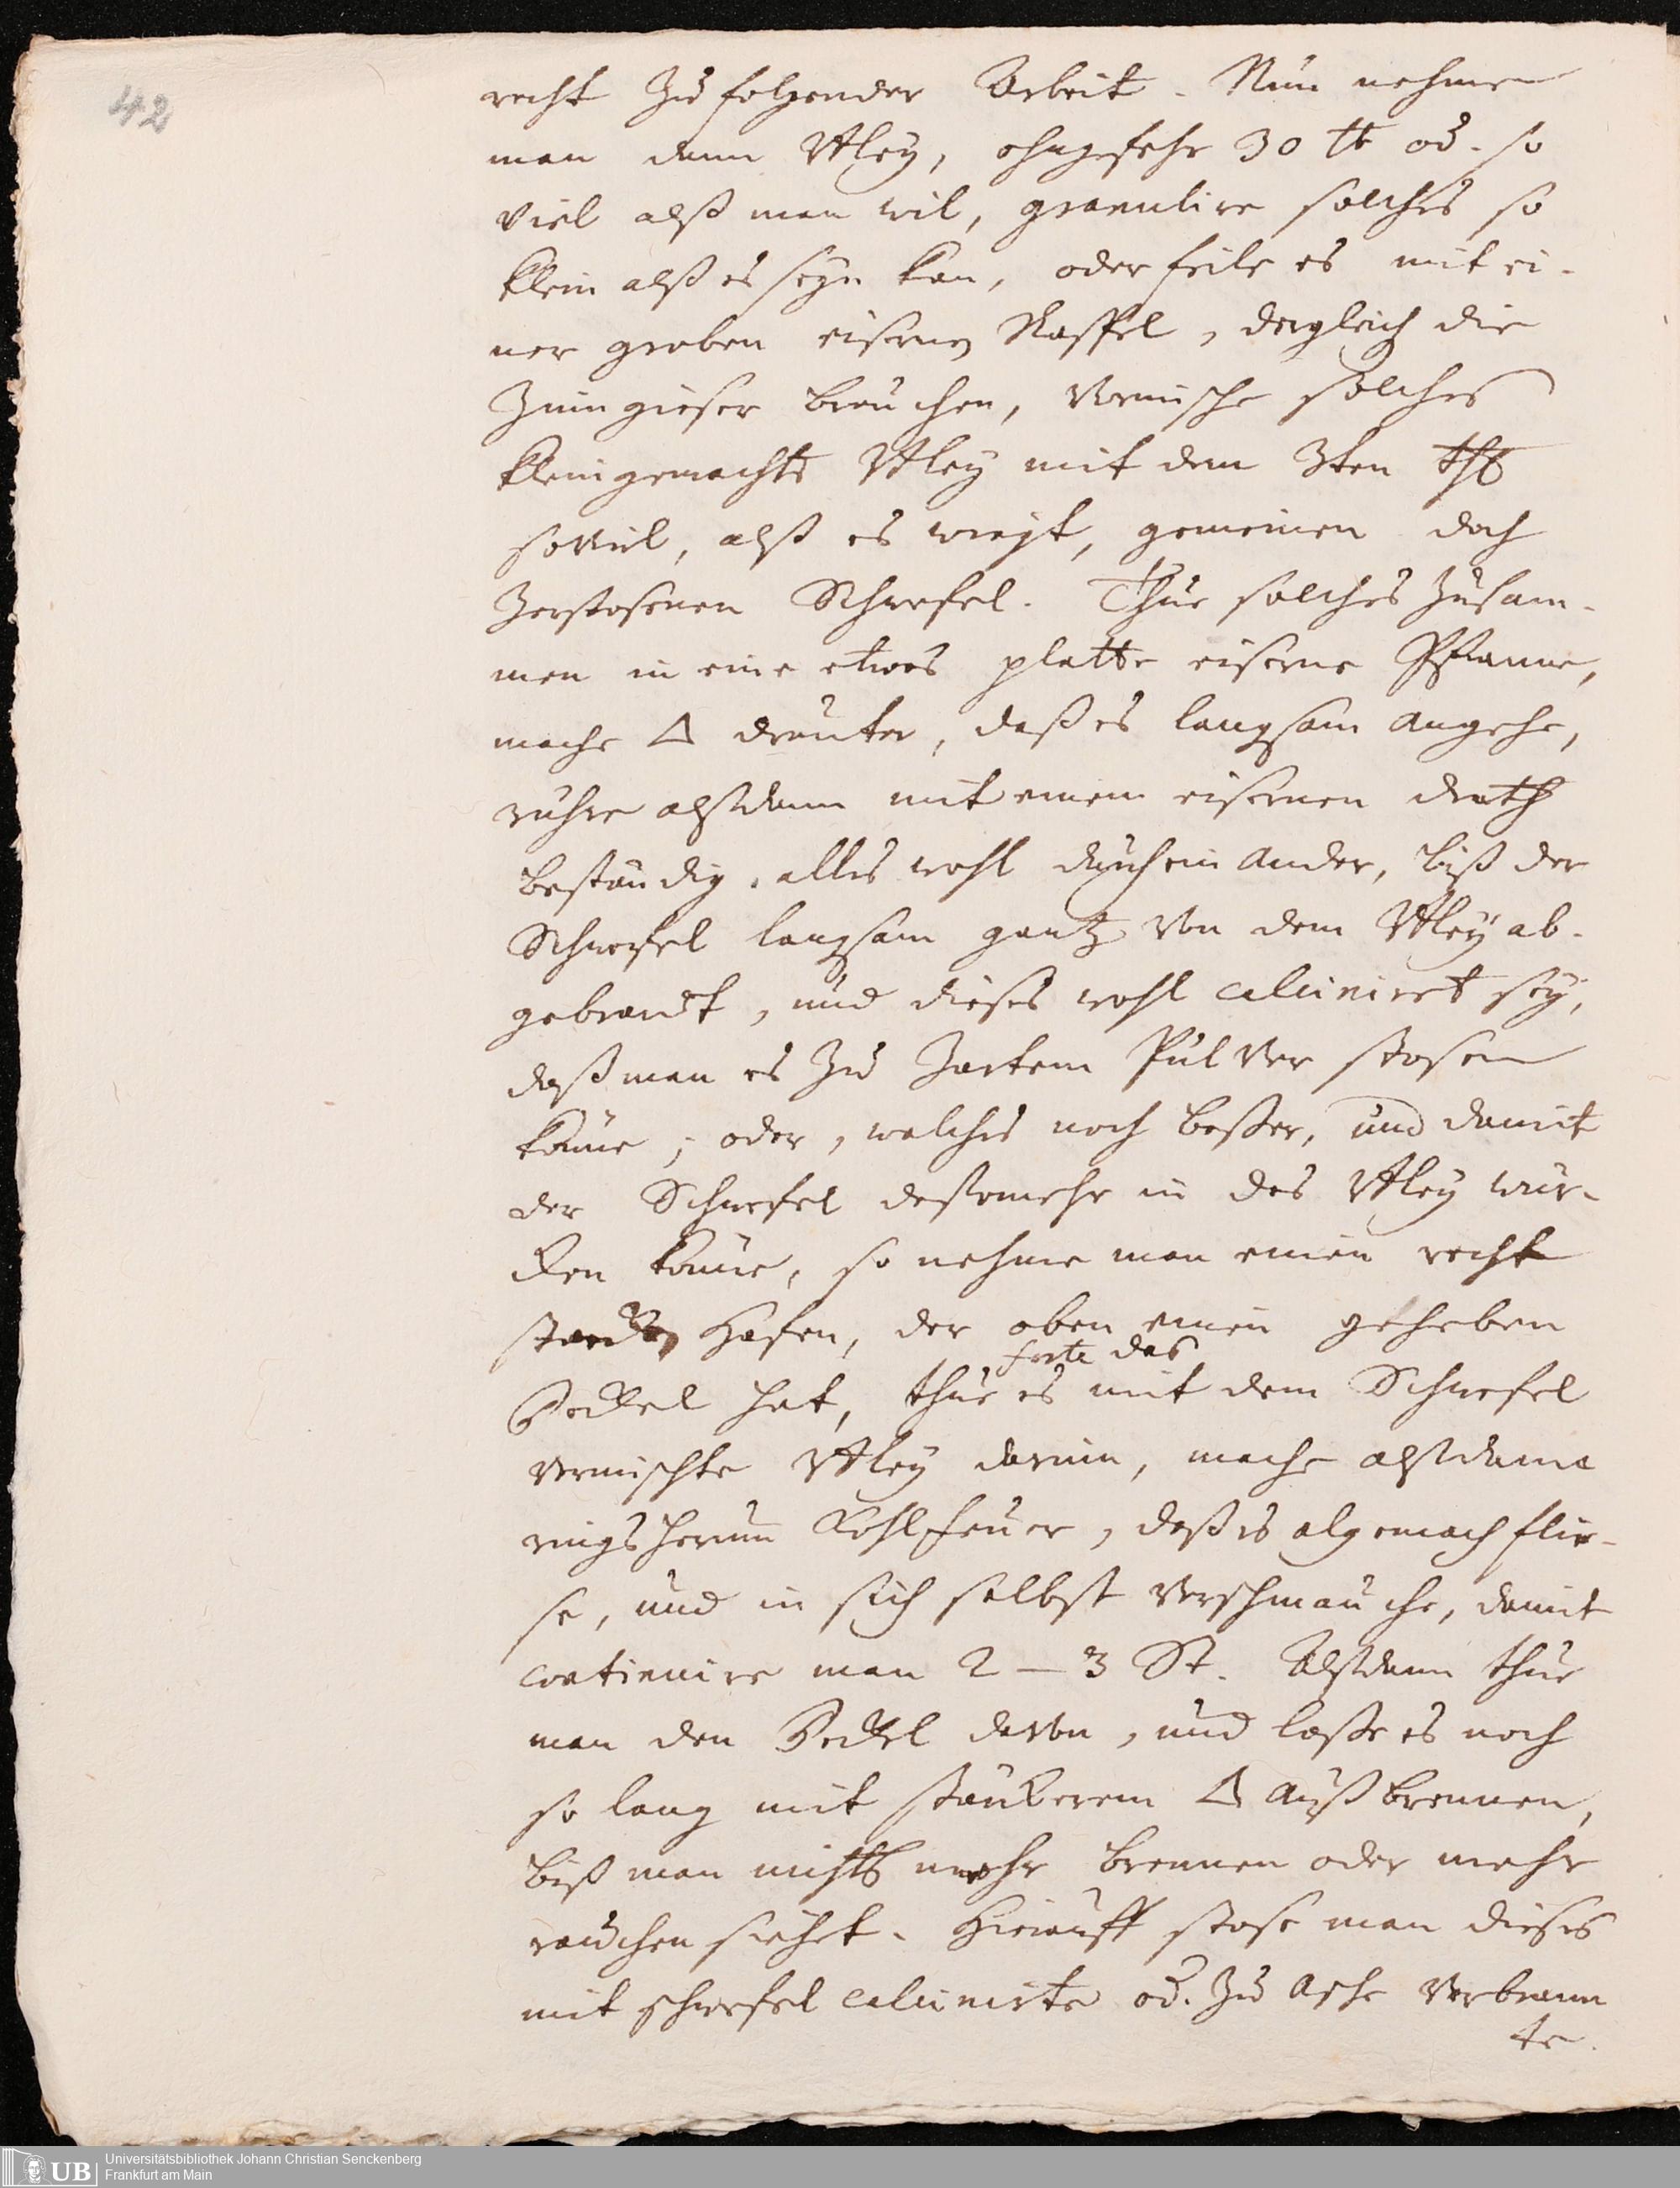 42
recht zu folgender Arbeit. Nun nehme
man dann Bley, ohngefehr 30 ℔ od. so
viel alß man wil, granulire solches so
klein alß es seyn kan, oder feile es mit ei-
ner groben eisernen Raspel, dergleich die
Zinngieser brauchen, vermische solches
kleingemachte Bley mit dem 3ten Thl
soviel, alß es wiegt, gemeinen doch
zerstosenen Schwefel. Thue solches zusam-
men in eine etwas platte eiserne Pfanne,
mache 🜂 drunter, daß es langsam angehe,
rühre alßdann mit einem eisernen drath
beständig, alles wohl durch ein ander, biß der
Schwefel langsam gantz von dem Bley ab-
gebrandt, und dieses wohl calciniret sey,
daß man es zu zartem Pulver stosen
könne; oder, welches noch besser, und damit
der Schwefel destomehr in das Bley wür-
cken könne, so nehme man einen recht
starcken Hafen, der oben einen geheben
Deckel hat, thue es mit dem Schwefel
das
vermischte Bley darein, mache alßdann
rings herum Kohlfeuer, daß es algemach flie-
se, und in sich selbst verschmauche, damit
continuire man 2 – 3 St. Alßdann thue
man den Deckel davon, und lasse es noch
so lang mit stärkerem 🜂 außbrennen,
biß man nichts mehr brennen oder mehr
rauchen siehet. Hierauff stose man dieses
mit schwefel calcinirte od. zu Asche verbrann
te.
UB Universitätsbibliothek Johann Christian Senckenberg
Frankfurt am Main